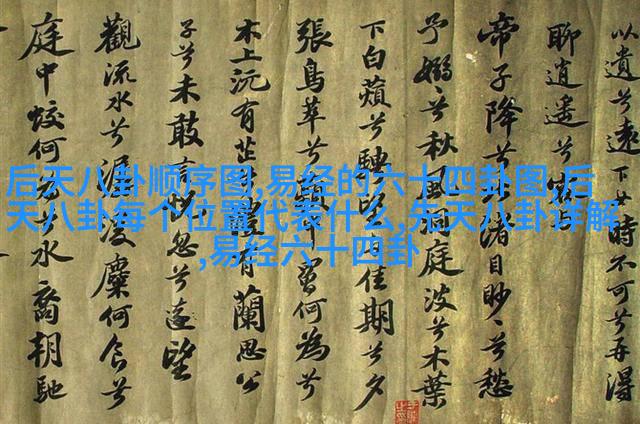 后天八卦顺序图,易经的六十四卦图,后
天八卦每个位置代表什么,先天八卦详解
,易经六十四卦
以遺兮遠時不可兮再得
聊逍遙兮
帝子降兮渚目眇々兮愁
予嫋々兮秋風洞庭波兮木葉
下白蘋兮騁望佳期兮夕
張鳥萃兮罾何為兮
木上沅有芷有蘭思公
子兮未敢言忽兮遠望
觀流水兮潺湲麋何食兮
庭中蛟何為水裔朝馳